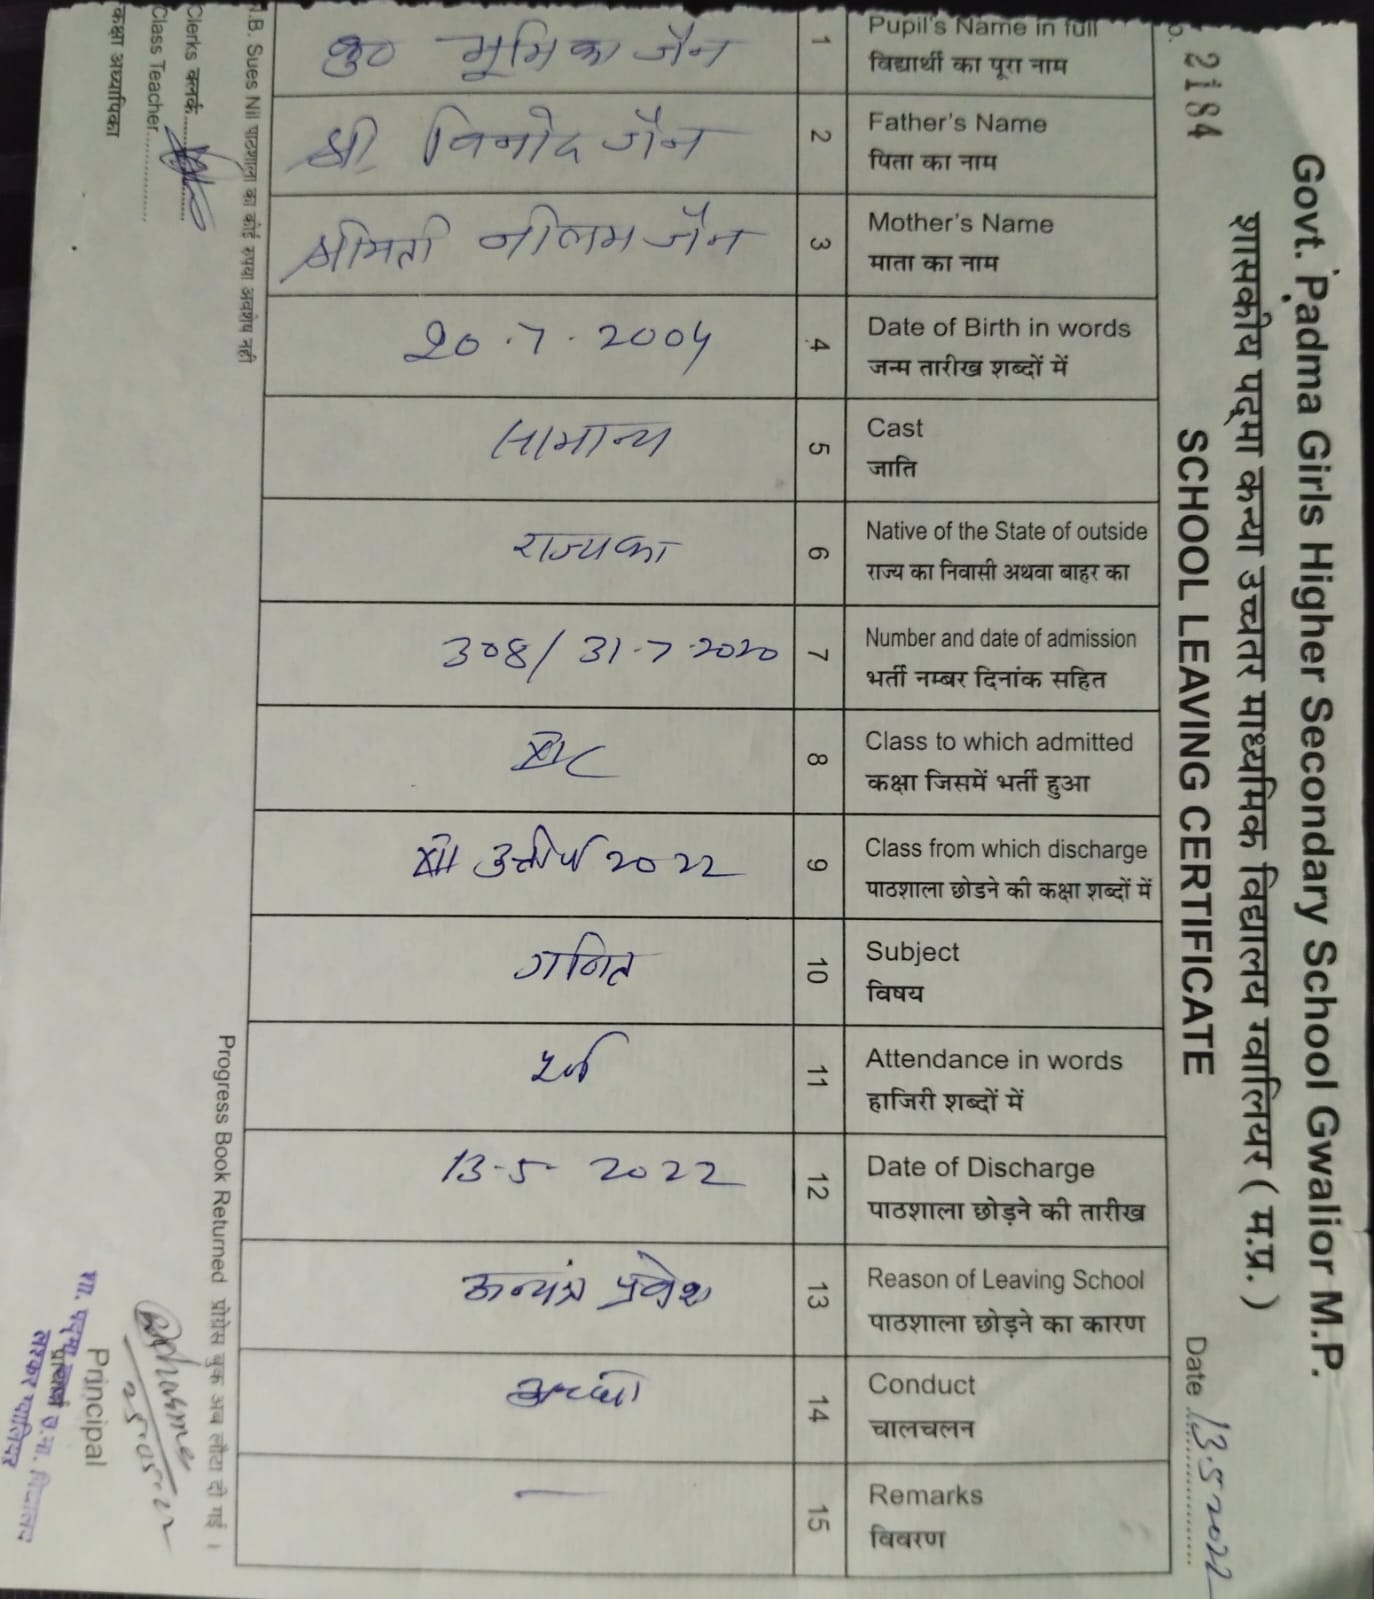 Govt. Padma Girls Higher Secondary School Gwalior M.P.
शासकीय पद्मा कन्या उच्चतर माध्यमिक विद्यालय ग्वालियर ( म.प्र. )
2184
SCHOOL LEAVING CERTIFICATE
Date 13.5.2022
1 Pupil's Name in full
विद्यार्थी का पूरा नाम
कु० भूमिका जैन
2 Father's Name
पिता का नाम
श्री विनोद जैन
3 Mother's Name
माता का नाम
श्रीमती नीलम जैन
4 Date of Birth in words
जन्म तारीख शब्दों में
20.7.2004
5 Cast
जाति
सामान्य
6 Native of the State of outside
राज्य का निवासी अथवा बाहर का
राज्य का
7 Number and date of admission
भर्ती नम्बर दिनांक सहित
308/ 31.7.2020
8 Class to which admitted
कक्षा जिसमें भर्ती हुआ
9 Class from which discharge
पाठशाला छोडने की कक्षा शब्दों में
XII उत्तीर्ण 2022
10 Subject
विषय
गणित
11 Attendance in words
हाजिरी शब्दों में
पूर्ण
12 Date of Discharge
पाठशाला छोड़ने की तारीख
13-5-2022
13 Reason of Leaving School
पाठशाला छोड़ने का कारण
अन्यंत्र प्रवेश
14 Conduct
चालचलन
अच्छा
15 Remarks
विवरण
—
N.B. Sues Nil पाठशाला का कोई रुपया अवशेष नही
Progress Book Returned प्रोग्रेस बुक अब लौटा दी गई ।
Clerks क्लर्क
Class Teacher
कक्षा अध्यापिका
Principal
प्राचार्य
शा. पद्मा क.उ.मा. विद्यालय
लश्कर ग्वालियर